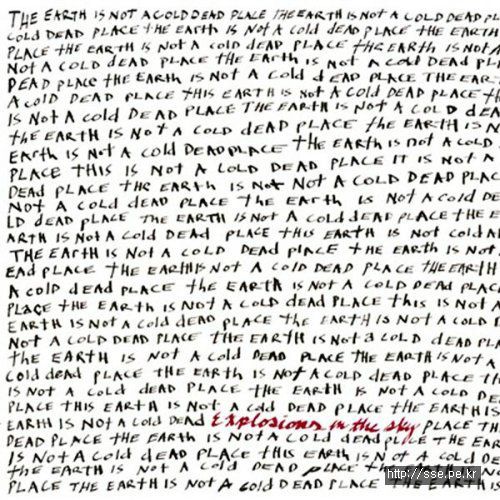 THE EARTH IS NOT A COLD DEAD PLACE THE EARTH IS NOT A COLD DEAD PL
COLD DEAD PLACE THE EARTH IS NOT A COLD DEAD PLACE THE EARTH
PLACE THE EARTH IS NOT A COLD DEAD PLACE THE EARTH IS NOT
NOT A COLD DEAD PLACE THE EARTH IS NOT A COLD DEAD PL
DEAD PLACE THE EARTH IS NOT A COLD DEAD PLACE THE EAR
A COLD DEAD PLACE THIS EARTH IS NOT A COLD DEAD PLACE TH
IS NOT A COLD DEAD PLACE THE EARTH IS NOT A COLD DEA
THE EARTH IS NOT A COLD DEAD PLACE THE EARTH IS NO
EARTH IS NOT A COLD DEAD PLACE THE EARTH IS NOT A COLD
PLACE THIS IS NOT A COLD DEAD PLACE IT IS NOT A
DEAD PLACE THE EARTH IS NOT NOT A COLD DEAD PLAC
NOT A COLD DEAD PLACE THE EARTH IS NOT A COLD DE
LD DEAD PLACE THE EARTH IS NOT A COLD DEAD PLACE THE E
ARTH IS NOT A COLD DEAD PLACE THIS EARTH IS NOT COLD A
THE EARTH IS NOT A COLD DEAD PLACE THE EARTH IS NOT
EAD PLACE THE EARTH IS NOT A COLD DEAD PLACE THE EARTH
A COLD DEAD PLACE THE EARTH IS NOT A COLD DEAD PLACE
PLACE THE EARTH IS NOT A COLD DEAD PLACE THIS IS NOT A
EARTH IS NOT A COLD DEAD PLACE THE EARTH IS NOT A COLD
NOT A COLD DEAD PLACE THE EARTH IS NOT A COLD DEAD PLA
THE EARTH IS NOT A COLD DEAD PLACE THE EARTH IS NOT A
COLD DEAD PLACE THE EARTH IS NOT A COLD DEAD PLACE TH
IS NOT A COLD DEAD PLACE THE EARTH IS NOT A COLD DE
PLACE THIS EARTH IS NOT A COLD DEAD PLACE THE EARTH IS
EARTH IS NOT A COLD DEAD Explosions in the sky PLACE TH
DEAD PLACE THE EARTH IS NOT A COLD DEAD PLACE THE EAR
IS NOT A COLD DEAD PLACE THIS EARTH IS NOT A COLD
THE EARTH IS NOT A COLD DEAD PLACE THE EARTH
DEAD PLACE THE EARTH IS NOT A COLD DEAD PLACE THE EARTH IS N
http://sse.pe.kr